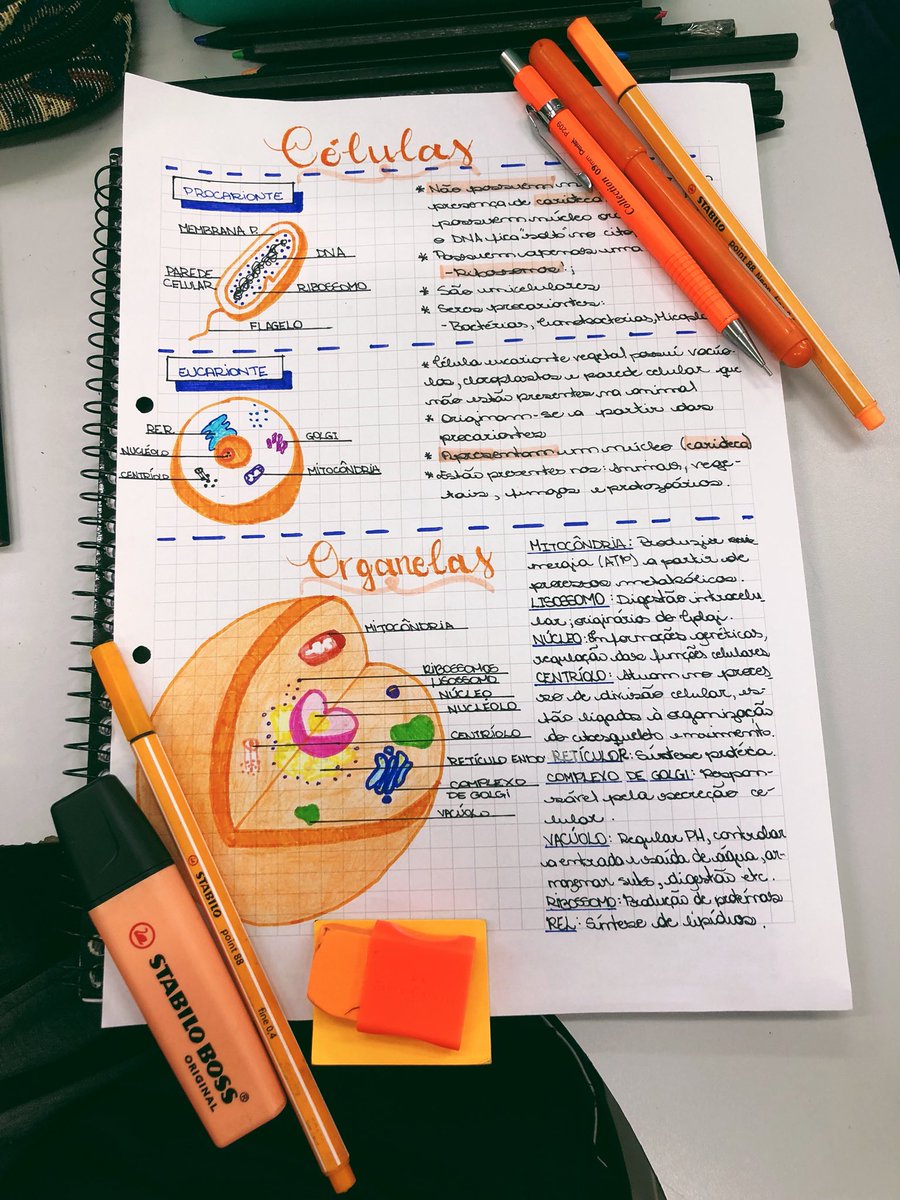 Células
PROCARIONTE
MEMBRANA P.
DNA
PAREDE
CELULAR
RIBOSSOMO
FLAGELO
* Não possuem
presença de carioteca
possuem núcleo
o DNA fica "solto" no
* Possuem apenas uma
- Ribossomos.;
* São unicelulares
* Seres procariontes:
- Bactérias, Cianobactérias,
EUCARIONTE
RER
GOLGI
NUCLÉOLO
CENTRÍOLO
MITOCÔNDRIA
* Célula eucarionte vegetal possui vacúo-
los, cloroplastos e parede celular que
não estão presentes na animal
* Originam-se a partir das
procariontes
* Apresentam um núcleo (carioteca)
* Estão presentes nos: Animais, vege-
tais, fungos e protozoários.
Organelas
MITOCÔNDRIA
RIBOSSOMOS
LISOSSOMO
NÚCLEO
NUCLÉOLO
CENTRÍOLO
RETÍCULO ENDO.
COMPLEXO
DE GOLGI
VACÚOLO
MITOCÔNDRIA: Produzir
energia (ATP) a partir de
processos metabólicos.
LISOSSOMO: Digestão intracelu-
lar, originários do Golgi.
NÚCLEO: Informações genéticas,
regulação das funções celulares
CENTRÍOLO: Atuam no proces
so de divisão celular, es-
tão ligados à organização
do citoesqueleto e movimento.
RETÍCULOR: Síntese protéica.
COMPLEXO DE GOLGI: Respon-
sável pela secreção ce-
lular.
VACÚOLO: Regular PH, controlar
a entrada e saída de água, ar-
mazenar subs, digestão etc.
RIBOSSOMO: Produção de proteínas
REL: Síntese de lipídios.
Collection 0.9mm Pentel P209
STABILO point 88
STABILO point 88 fine 0,4
STABILO BOSS®
ORIGINAL